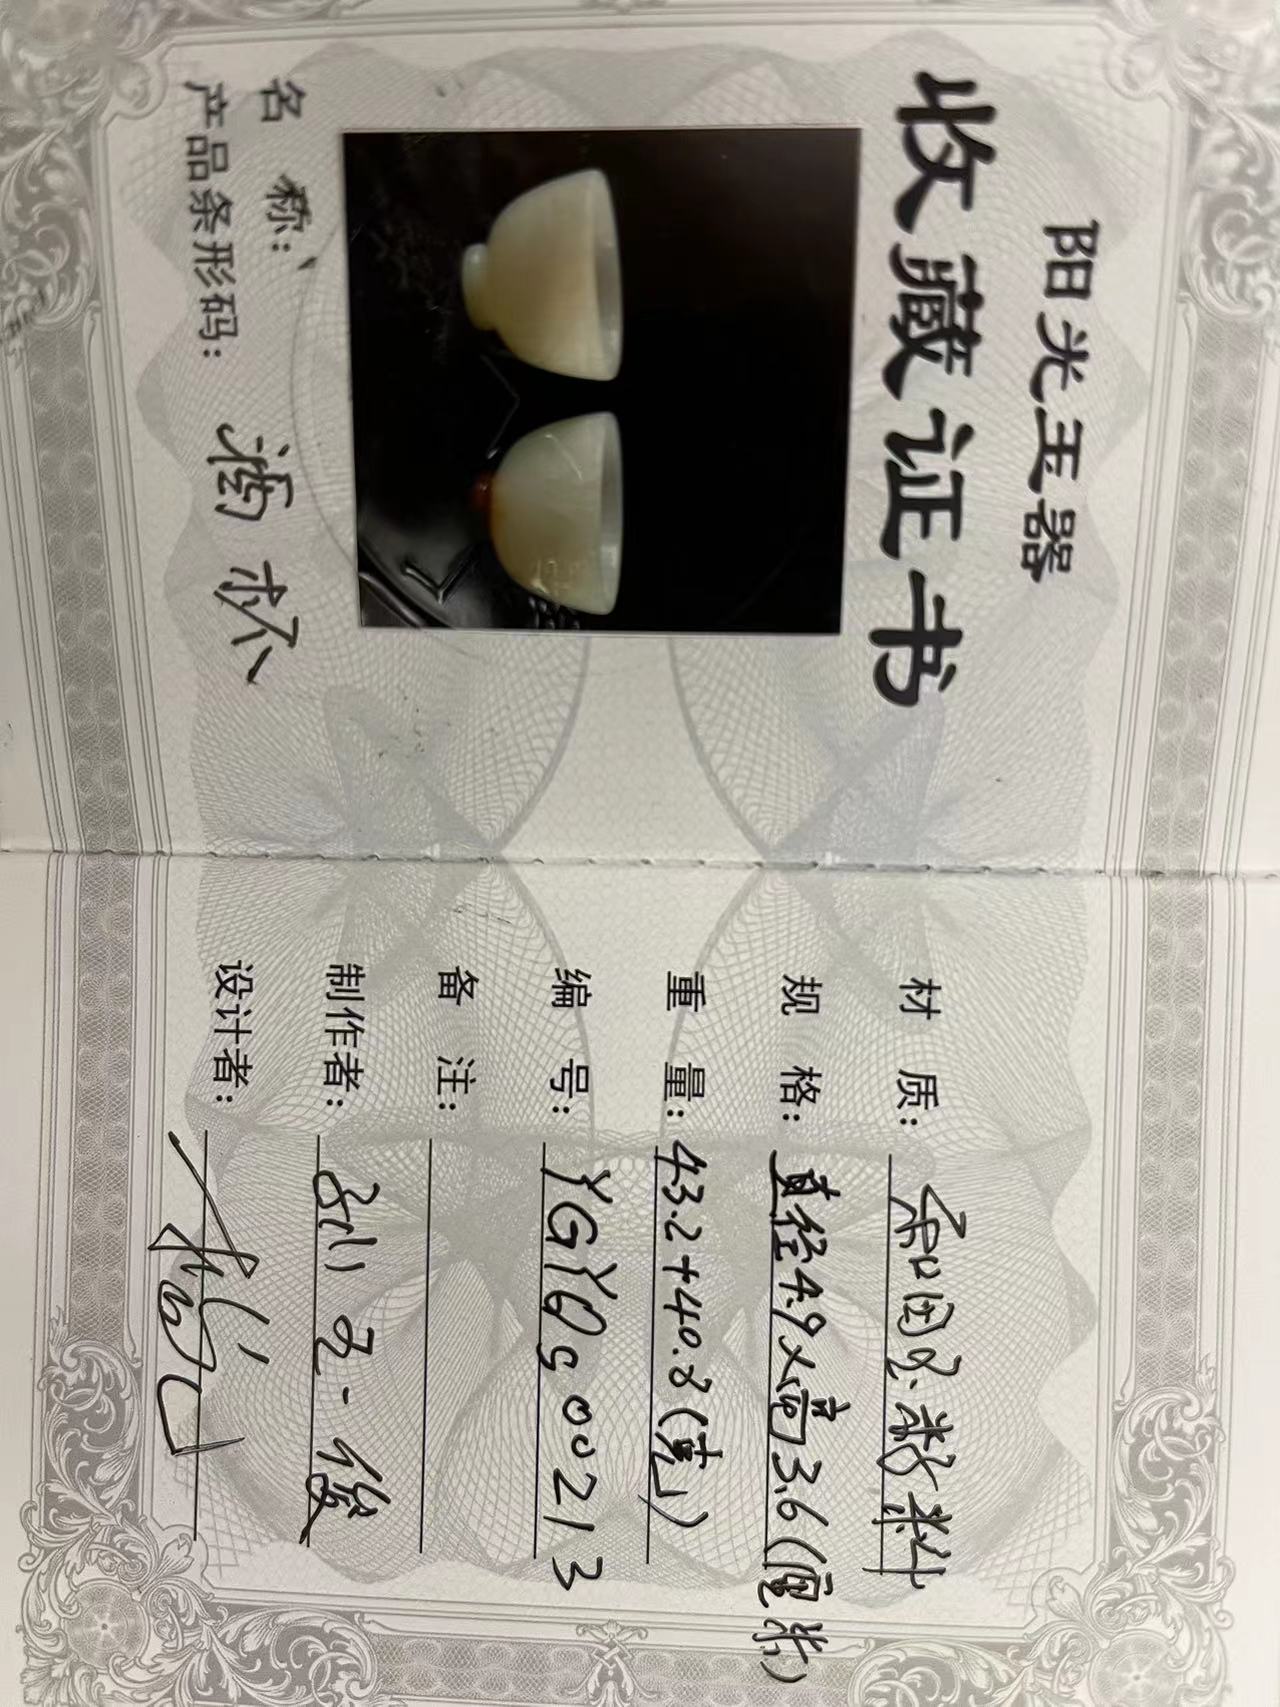 阳光玉器
收藏证书
名 称：
产品条形码：
酒杯
材 质：和田玉籽料
规 格：直径4.9×高3.6(厘米)
重 量：43.2+40.8(克)
编 号：YGYQS00213
备 注：
制作者：孙玉俊
设计者：